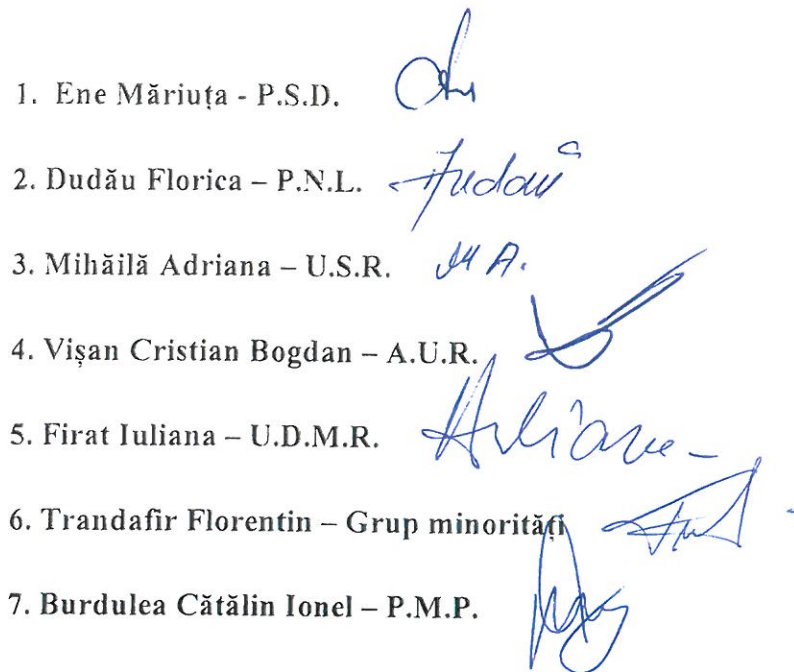 1. Ene Măriuța - P.S.D.
2. Dudău Florica – P.N.L.
3. Mihăilă Adriana – U.S.R. M A.
4. Vișan Cristian Bogdan – A.U.R.
5. Firat Iuliana – U.D.M.R.
6. Trandafir Florentin – Grup minorități
7. Burdulea Cătălin Ionel – P.M.P.